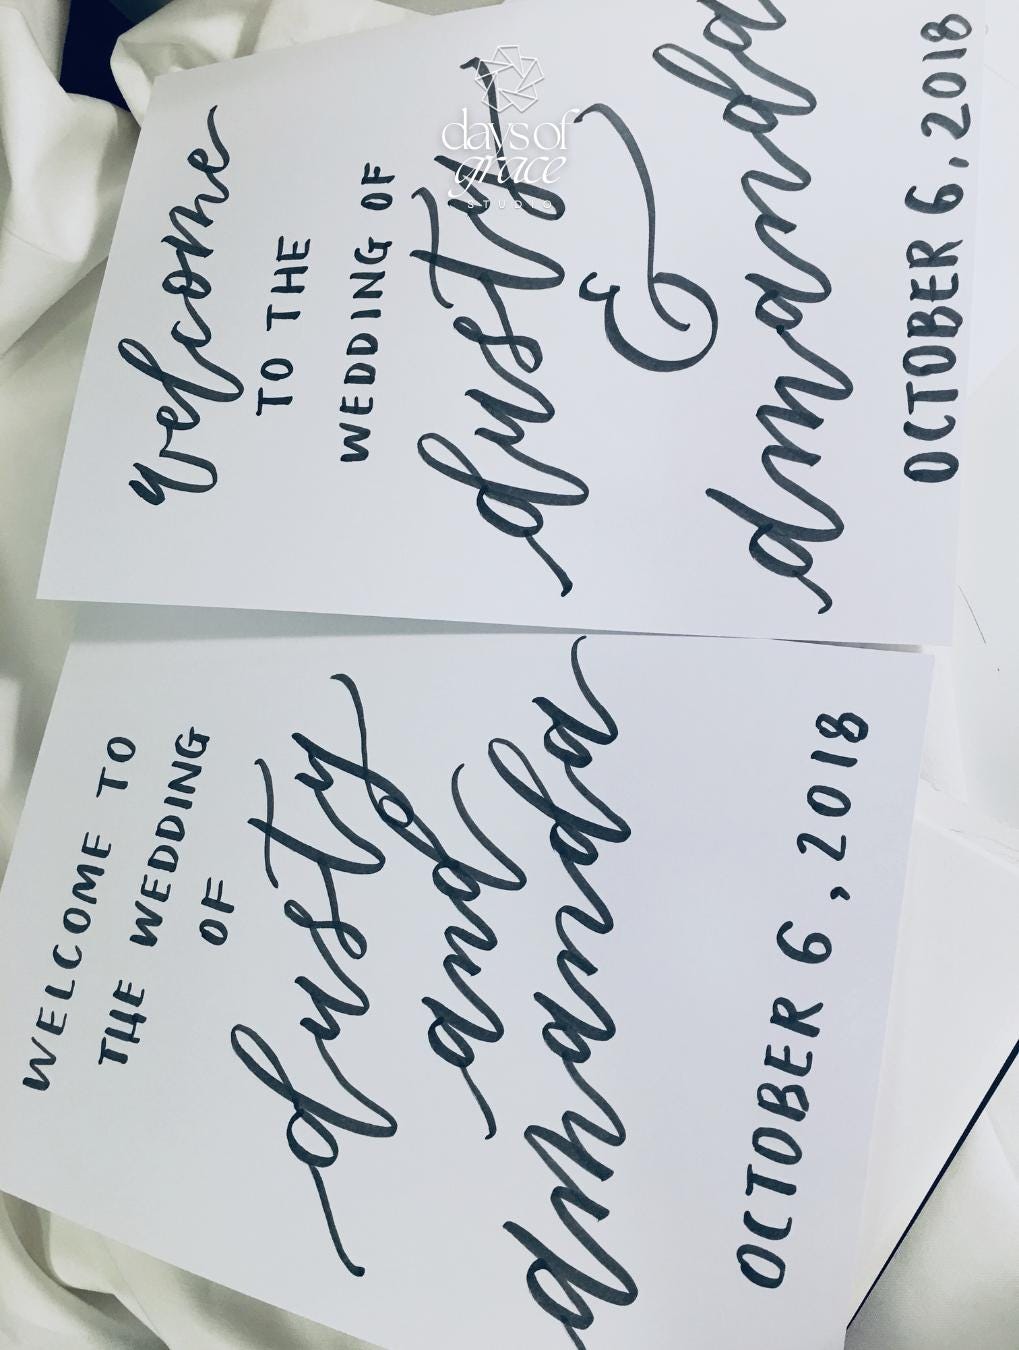 days of
grace
STUDIO
welcome
TO THE
WEDDING OF
dusty
&
amanda
OCTOBER 6, 2018
WELCOME TO
THE WEDDING
OF
dusty
and
amanda
OCTOBER 6, 2018